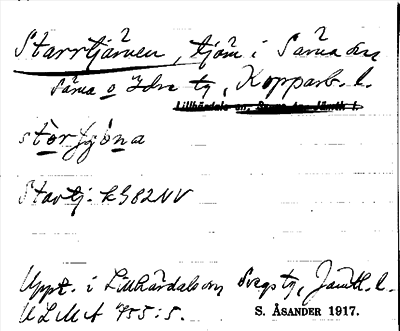 Starrtjärnen, tjärn i Särna sn
Särna o Idre tg, Kopparb. l.
Lillhärdals sn, Svegs tg, Jämtl. l.
Startj: kg82NV
Uppt. i Lillhärdals sn Svegs tg, Jämtl. l.
ULMA 455:5. S. ÅSANDER 1917.